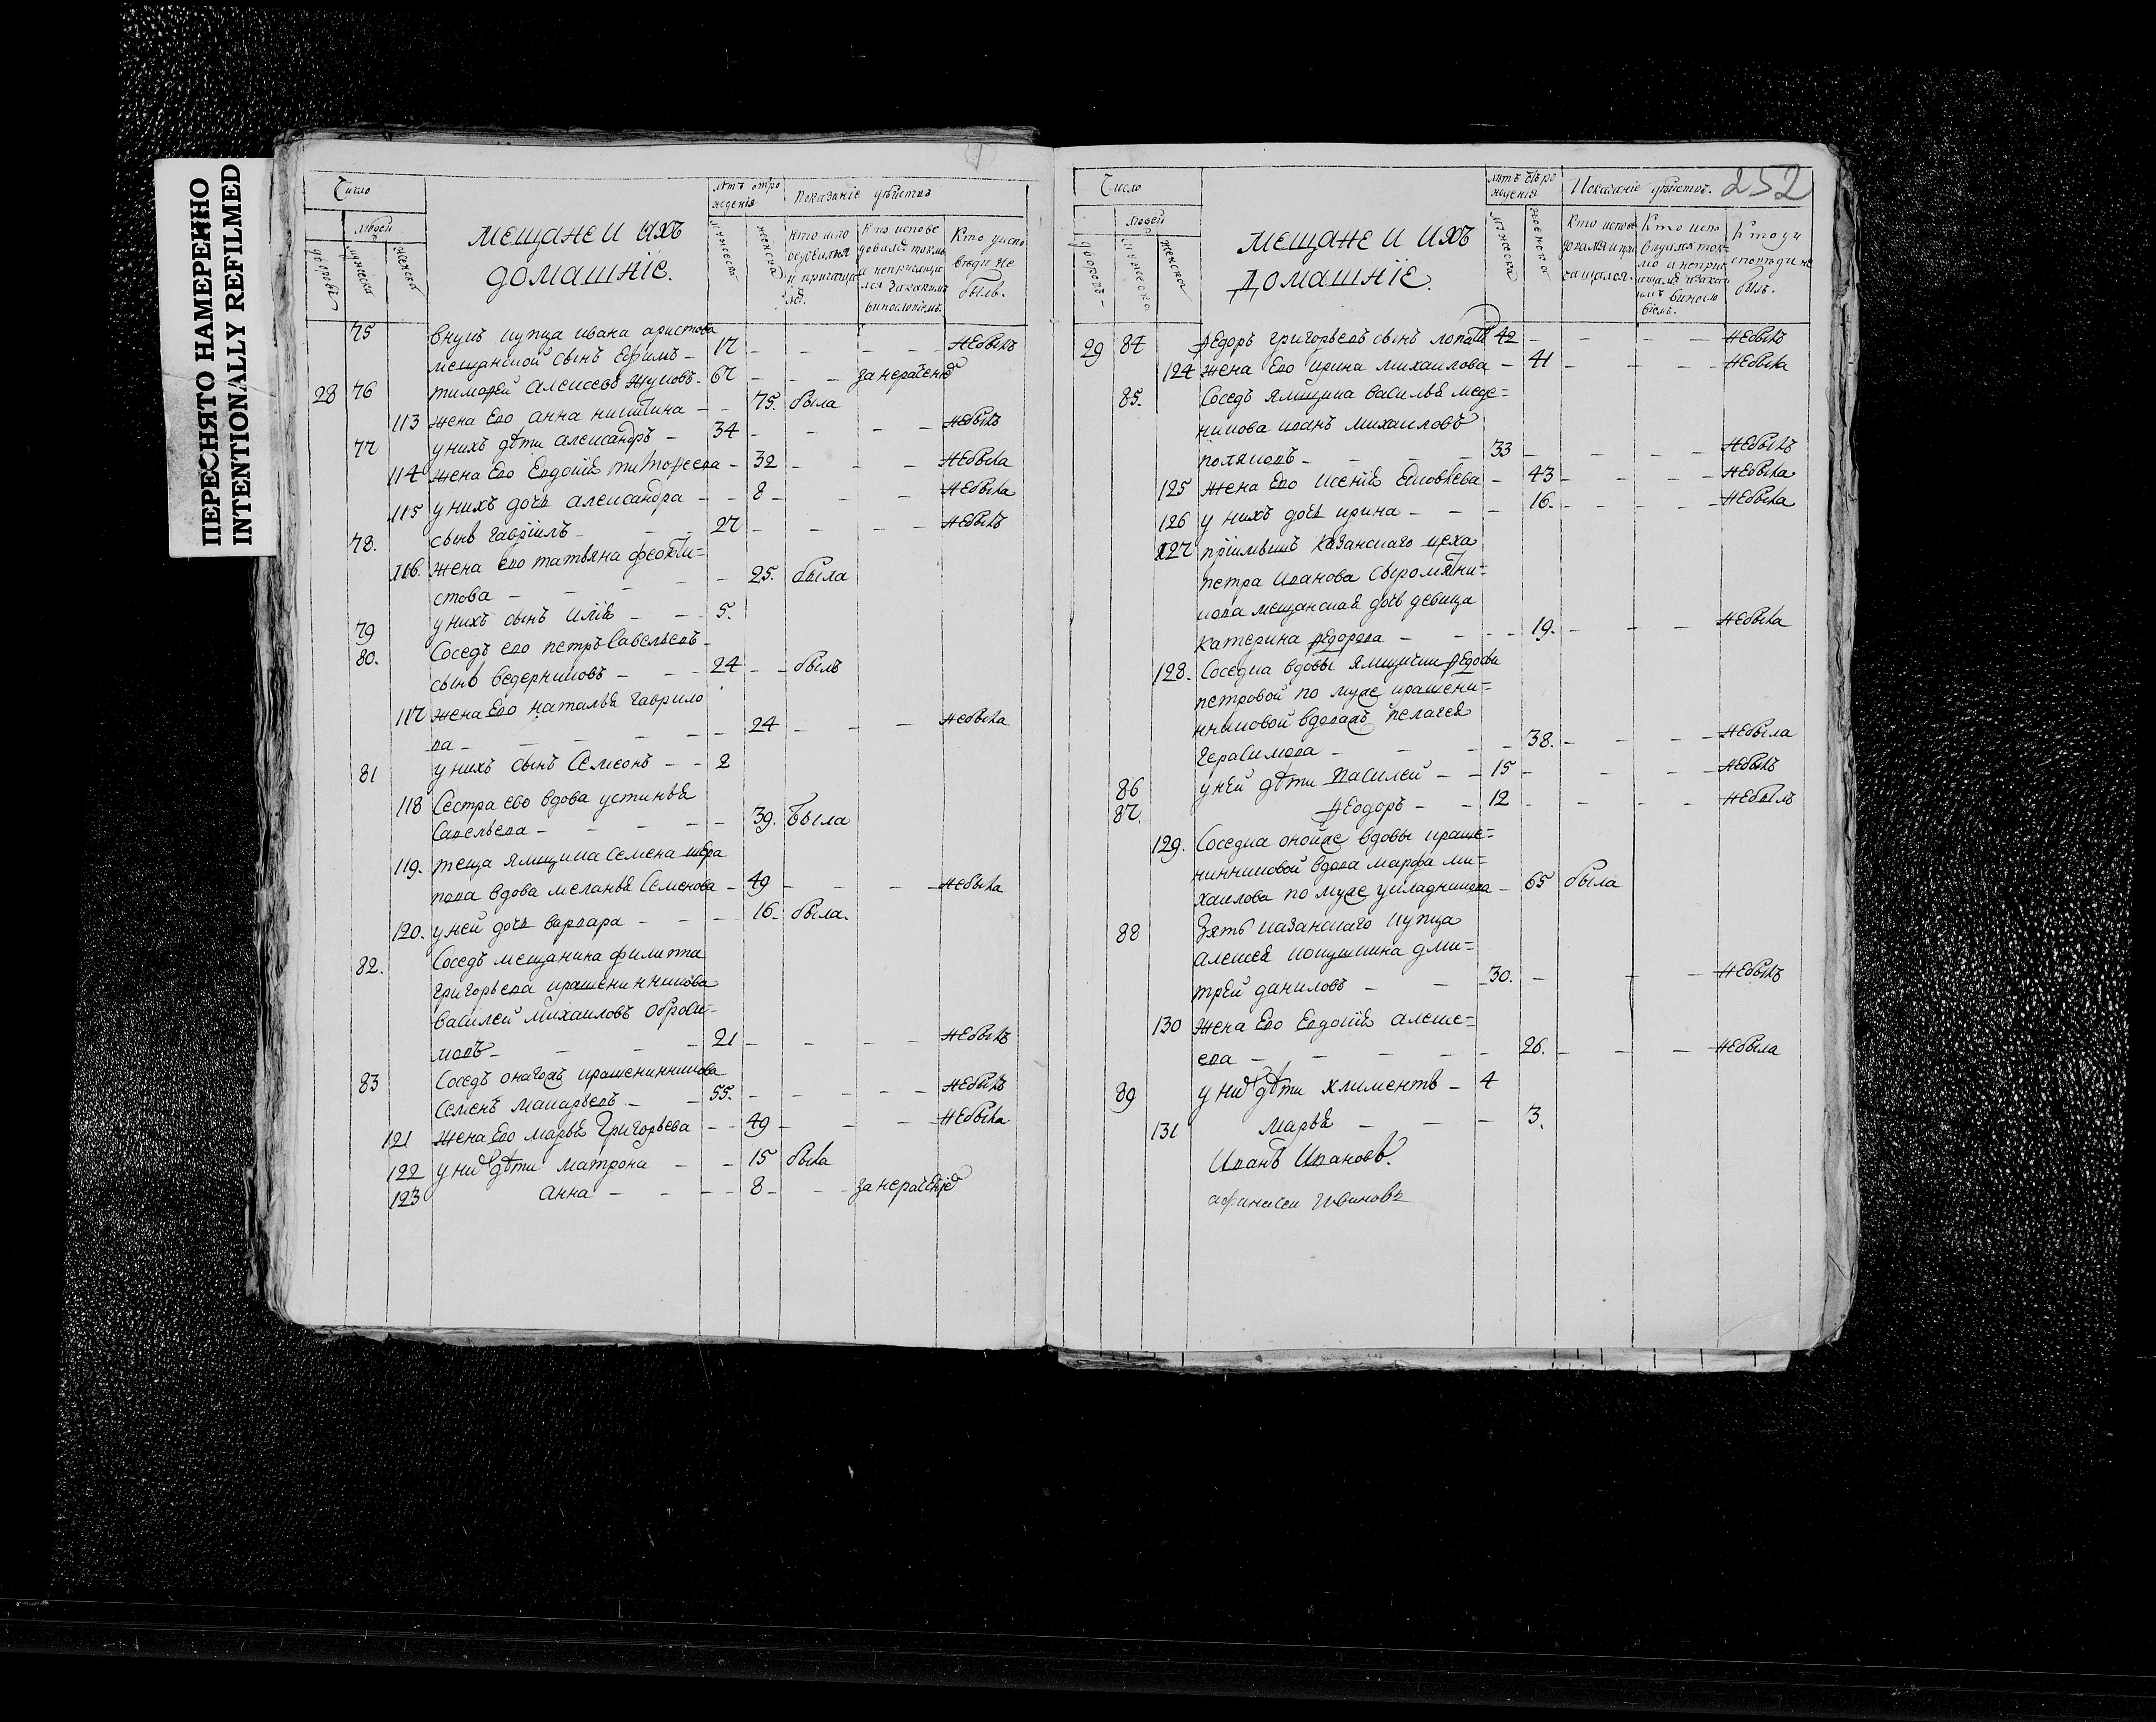 ПЕРЕСНЯТО НАМЕРЕННО
INTENTIONALLY REFILMED
Число
людей
дворовъ
мужеска
женска
мещане и ихъ
домашніе.
лѣтъ отро
жденія
мужеска
женска
Показаніе дѣйствъ
Кто испо
и причаща
Кто испове
довался токмо
а непричаща
Кто уиспо
вѣди не
былъ.
75 внукъ купца ивана аристова
мещанской сынъ Ефимъ - 17 - - - - небылъ
28 76 тимофей алексеевъ жуковъ - 67 - - - занераченіе
113 жена Ево анна никитина - - 75. была
77 унихъ дѣти александръ - 34 - - - - небылъ
114 жена Ево Евдокіѣ тимофеева - 32 - - - небыла
115 унихъ дочь александра - - 8 - - - небыла
78. сынъ гавріилъ - - - 27 - - - - небылъ
116. жена ево татьяна феокти=
стова - - - - - 25. была
79 унихъ сынъ иліѣ - - - 5.
80. Соседъ ево петръ Савельевъ -
сынъ ведерниковъ - - - 24 - - былъ
117 жена Ево наталья гаврило
ва - - - - - - 24 - - - небыла
81 унихъ сынъ Семионъ - - 2
118 Сестра ево вдова устинья
Савельева - - - - - 39. Была
119. теща ямщика семена
вдова меланья Семенова - 49 - - - небыла
120. уней дочь варвара - - - 16. была.
82. Соседъ мещанина филиппа
григорьева крашенинникова
василей михаиловъ
- - - 21 - - - - небылъ
83 Соседъ онагожъ крашенинникова
Семенъ макарьевъ - - 55. - - - - небылъ
121 жена Ево марья Григорьева - - 49 - - - небыла
122 унихъ дѣти матрона - - 15 была
123 анна - - - - 8 - - - занераченіе
252
Число
людей
дворовъ
мужеска
женска
мещане и ихъ
домашніе.
лѣтъ отъ ро
жденія
мужеска
женска
Показаніе дѣйствъ.
Кто испов
Кто испо
Кто у и
споведи не
былъ.
29 84 федоръ григорьевъ сынъ 42 - - - - небылъ
124 жена Ево ирина михаилова - 41 - - - небыла
85. Соседъ ямщика василья меде=
никова иванъ михаиловъ
поляковъ - - - - 33 - - - - небылъ
125 жена Ево ксеніѣ - 43 - - - небыла
126 у нихъ дочь ирина - - - 16. - - - - небыла
127 пріимышъ казанскаго цеха
петра иванова Сыромятни=
кова мещанская дочь девица
катерина федорова - - - - 19. - - - небыла
128. Соседка вдовы ямщички
петровой по муже крашени=
нниковой вдоважъ пелагея
герасимова - - - - - 38. - - - небыла
86 уней дѣти василей - - 15 - - - - небылъ
87. феодоръ - - 12 - - - - небылъ
129. Соседка онойже вдовы краше=
нинниковой вдова марфа ми=
хаилова по муже укладникова - 65 была
88 Зять казанскаго купца
алексея дми=
трей даниловъ - - - 30. - - - небылъ
130 жена Ево Евдокіѣ алексе=
ева - - - - - - 26. - - - небыла
89 унихъ дѣти климентъ - 4
131 марья - - - - 3.
Иванъ Ивановъ.
афанасеи Ивановъ